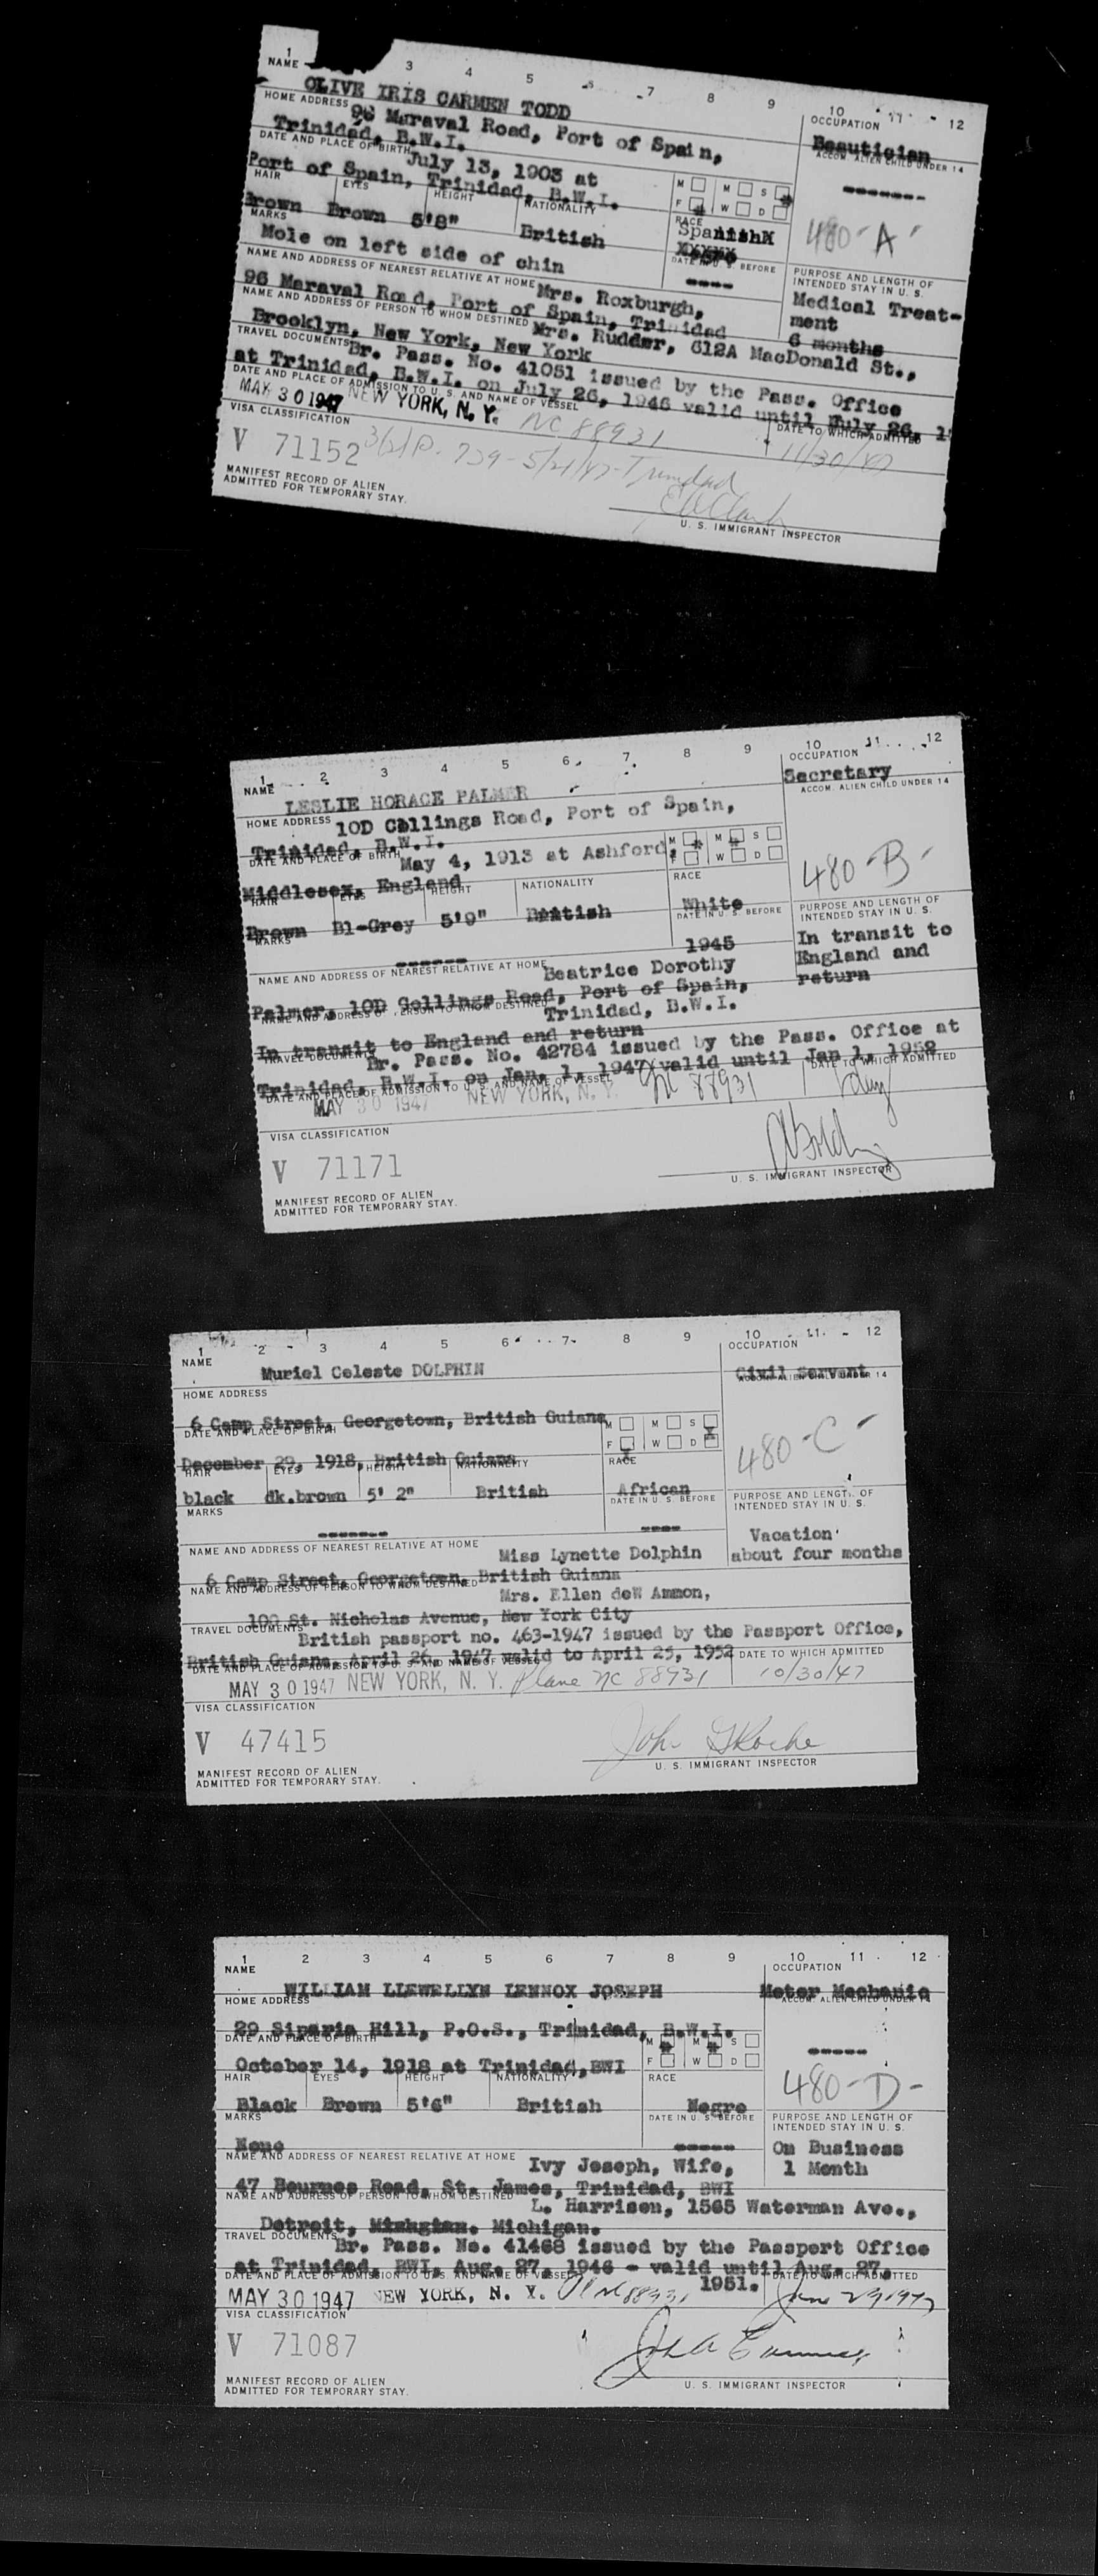 1 3 4 5 6 7 8 9 10 11 12
NAME
OLIVE IRIS CARMEN TODD
OCCUPATION
Beautician
HOME ADDRESS
96 Maraval Road, Port of Spain,
Trinidad, B.W.I.
ACCOM. ALIEN CHILD UNDER 14
-------
DATE AND PLACE OF BIRTH
July 13, 1903 at
Port of Spain, Trinidad, B.W.I.
M M S
F W D
480-A-
HAIR EYES HEIGHT NATIONALITY RACE
Brown Brown 5'8" British Spanish
MARKS
Mole on left side of chin
DATE IN U. S. BEFORE
----
PURPOSE AND LENGTH OF
INTENDED STAY IN U. S.
Medical Treat-
ment
6 months
NAME AND ADDRESS OF NEAREST RELATIVE AT HOME
Mrs. Roxburgh,
96 Maraval Road, Port of Spain, Trinidad
NAME AND ADDRESS OF PERSON TO WHOM DESTINED
Mrs. Rudder, 612A MacDonald St.,
Brooklyn, New York, New York
TRAVEL DOCUMENTS
Br. Pass. No. 41051 issued by the Pass. Office
at Trinidad, B.W.I. on July 26, 1946 valid until July 26, 1
DATE AND PLACE OF ADMISSION TO U. S. AND NAME OF VESSEL
DATE TO WHICH ADMITTED
MAY 30 1947 NEW YORK, N. Y. NC 88931 11/30/47
VISA CLASSIFICATION
V 71152 3(2)P. 739-5/21/47-Trinidad
MANIFEST RECORD OF ALIEN
ADMITTED FOR TEMPORARY STAY.
U. S. IMMIGRANT INSPECTOR
1 2 3 4 5 6 7 8 9 10 11 12
NAME
LESLIE HORACE PALMER
OCCUPATION
Secretary
HOME ADDRESS
10D Collings Road, Port of Spain,
Trinidad, B.W.I.
ACCOM. ALIEN CHILD UNDER 14
DATE AND PLACE OF BIRTH
May 4, 1913 at Ashford,
Middlesex, England
M M S
F W D
480-B-
HAIR EYES HEIGHT NATIONALITY RACE
Brown Bl-Grey 5'9" British White
MARKS
------
DATE IN U. S. BEFORE
1945
PURPOSE AND LENGTH OF
INTENDED STAY IN U. S.
In transit to
England and
return
NAME AND ADDRESS OF NEAREST RELATIVE AT HOME
Beatrice Dorothy
Palmer, 10D Collings Road, Port of Spain,
Trinidad, B.W.I.
NAME AND ADDRESS OF PERSON TO WHOM DESTINED
In transit to England and return
TRAVEL DOCUMENTS
Br. Pass. No. 42784 issued by the Pass. Office at
Trinidad, B.W.I. on Jan. 1, 1947 valid until Jan 1, 1952
DATE AND PLACE OF ADMISSION TO U. S. AND NAME OF VESSEL
DATE TO WHICH ADMITTED
MAY 30 1947 NEW YORK, N. Y. NC 88931
VISA CLASSIFICATION
V 71171
MANIFEST RECORD OF ALIEN
ADMITTED FOR TEMPORARY STAY.
U. S. IMMIGRANT INSPECTOR
1 2 3 4 5 6 7 8 9 10 11 12
NAME
Muriel Celeste DOLPHIN
OCCUPATION
Civil Servant
HOME ADDRESS
6 Camp Street, Georgetown, British Guiana
ACCOM. ALIEN CHILD UNDER 14
DATE AND PLACE OF BIRTH
December 29, 1918, British Guiana
M M S
F W D
480-C-
HAIR EYES HEIGHT NATIONALITY RACE
black dk.brown 5' 2" British African
MARKS
-------
DATE IN U. S. BEFORE
----
PURPOSE AND LENGTH OF
INTENDED STAY IN U. S.
Vacation
about four months
NAME AND ADDRESS OF NEAREST RELATIVE AT HOME
Miss Lynette Dolphin
6 Camp Street, Georgetown, British Guiana
NAME AND ADDRESS OF PERSON TO WHOM DESTINED
Mrs. Ellen deW Ammon,
100 St. Nicholas Avenue, New York City
TRAVEL DOCUMENTS
British passport no. 463-1947 issued by the Passport Office,
British Guiana, April 26, 1947 valid to April 25, 1952
DATE AND PLACE OF ADMISSION TO U. S. AND NAME OF VESSEL
DATE TO WHICH ADMITTED
MAY 30 1947 NEW YORK, N. Y. Plane NC 88931 10/30/47
VISA CLASSIFICATION
V 47415
MANIFEST RECORD OF ALIEN
ADMITTED FOR TEMPORARY STAY.
U. S. IMMIGRANT INSPECTOR
1 2 3 4 5 6 7 8 9 10 11 12
NAME
WILLIAM LLEWELLYN LENNOX JOSEPH
OCCUPATION
Motor Mechanic
HOME ADDRESS
29 Siparia Hill, P.O.S., Trinidad, B.W.I.
ACCOM. ALIEN CHILD UNDER 14
-----
DATE AND PLACE OF BIRTH
October 14, 1918 at Trinidad, BWI
M M S
F W D
480-D-
HAIR EYES HEIGHT NATIONALITY RACE
Black Brown 5'6" British Negro
MARKS
None
DATE IN U. S. BEFORE
-----
PURPOSE AND LENGTH OF
INTENDED STAY IN U. S.
On Business
1 Month
NAME AND ADDRESS OF NEAREST RELATIVE AT HOME
Ivy Joseph, Wife,
47 Bournes Road, St. James, Trinidad, BWI
NAME AND ADDRESS OF PERSON TO WHOM DESTINED
L. Harrison, 1565 Waterman Ave.,
Detroit, Michigan.
TRAVEL DOCUMENTS
Br. Pass. No. 41468 issued by the Passport Office
at Trinidad, BWI, Aug. 27, 1946 - valid until Aug. 27,
1951.
DATE AND PLACE OF ADMISSION TO U. S. AND NAME OF VESSEL
DATE TO WHICH ADMITTED
MAY 30 1947 NEW YORK, N. Y. Pl NC 88931 June 29 1947
VISA CLASSIFICATION
V 71087
MANIFEST RECORD OF ALIEN
ADMITTED FOR TEMPORARY STAY.
U. S. IMMIGRANT INSPECTOR